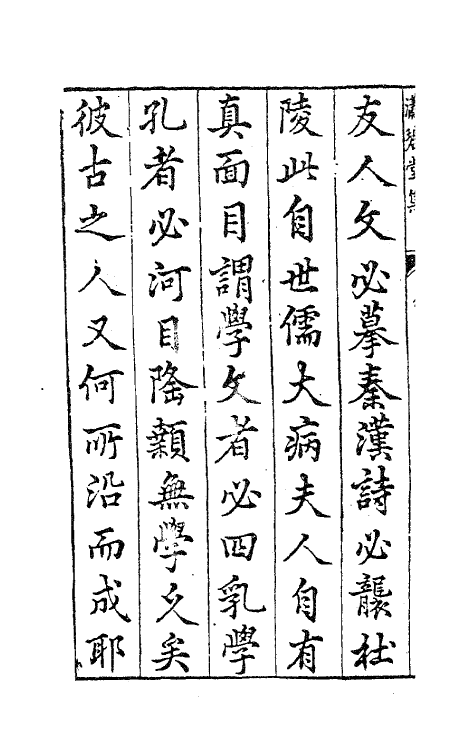 瀟碧堂集
友人文必摹秦漢詩必襲杜
陵此自世儒大病夫人自有
真面目謂學文者必四乳學
孔者必河目隆顙無學文矣
彼古之人又何所沿而成耶